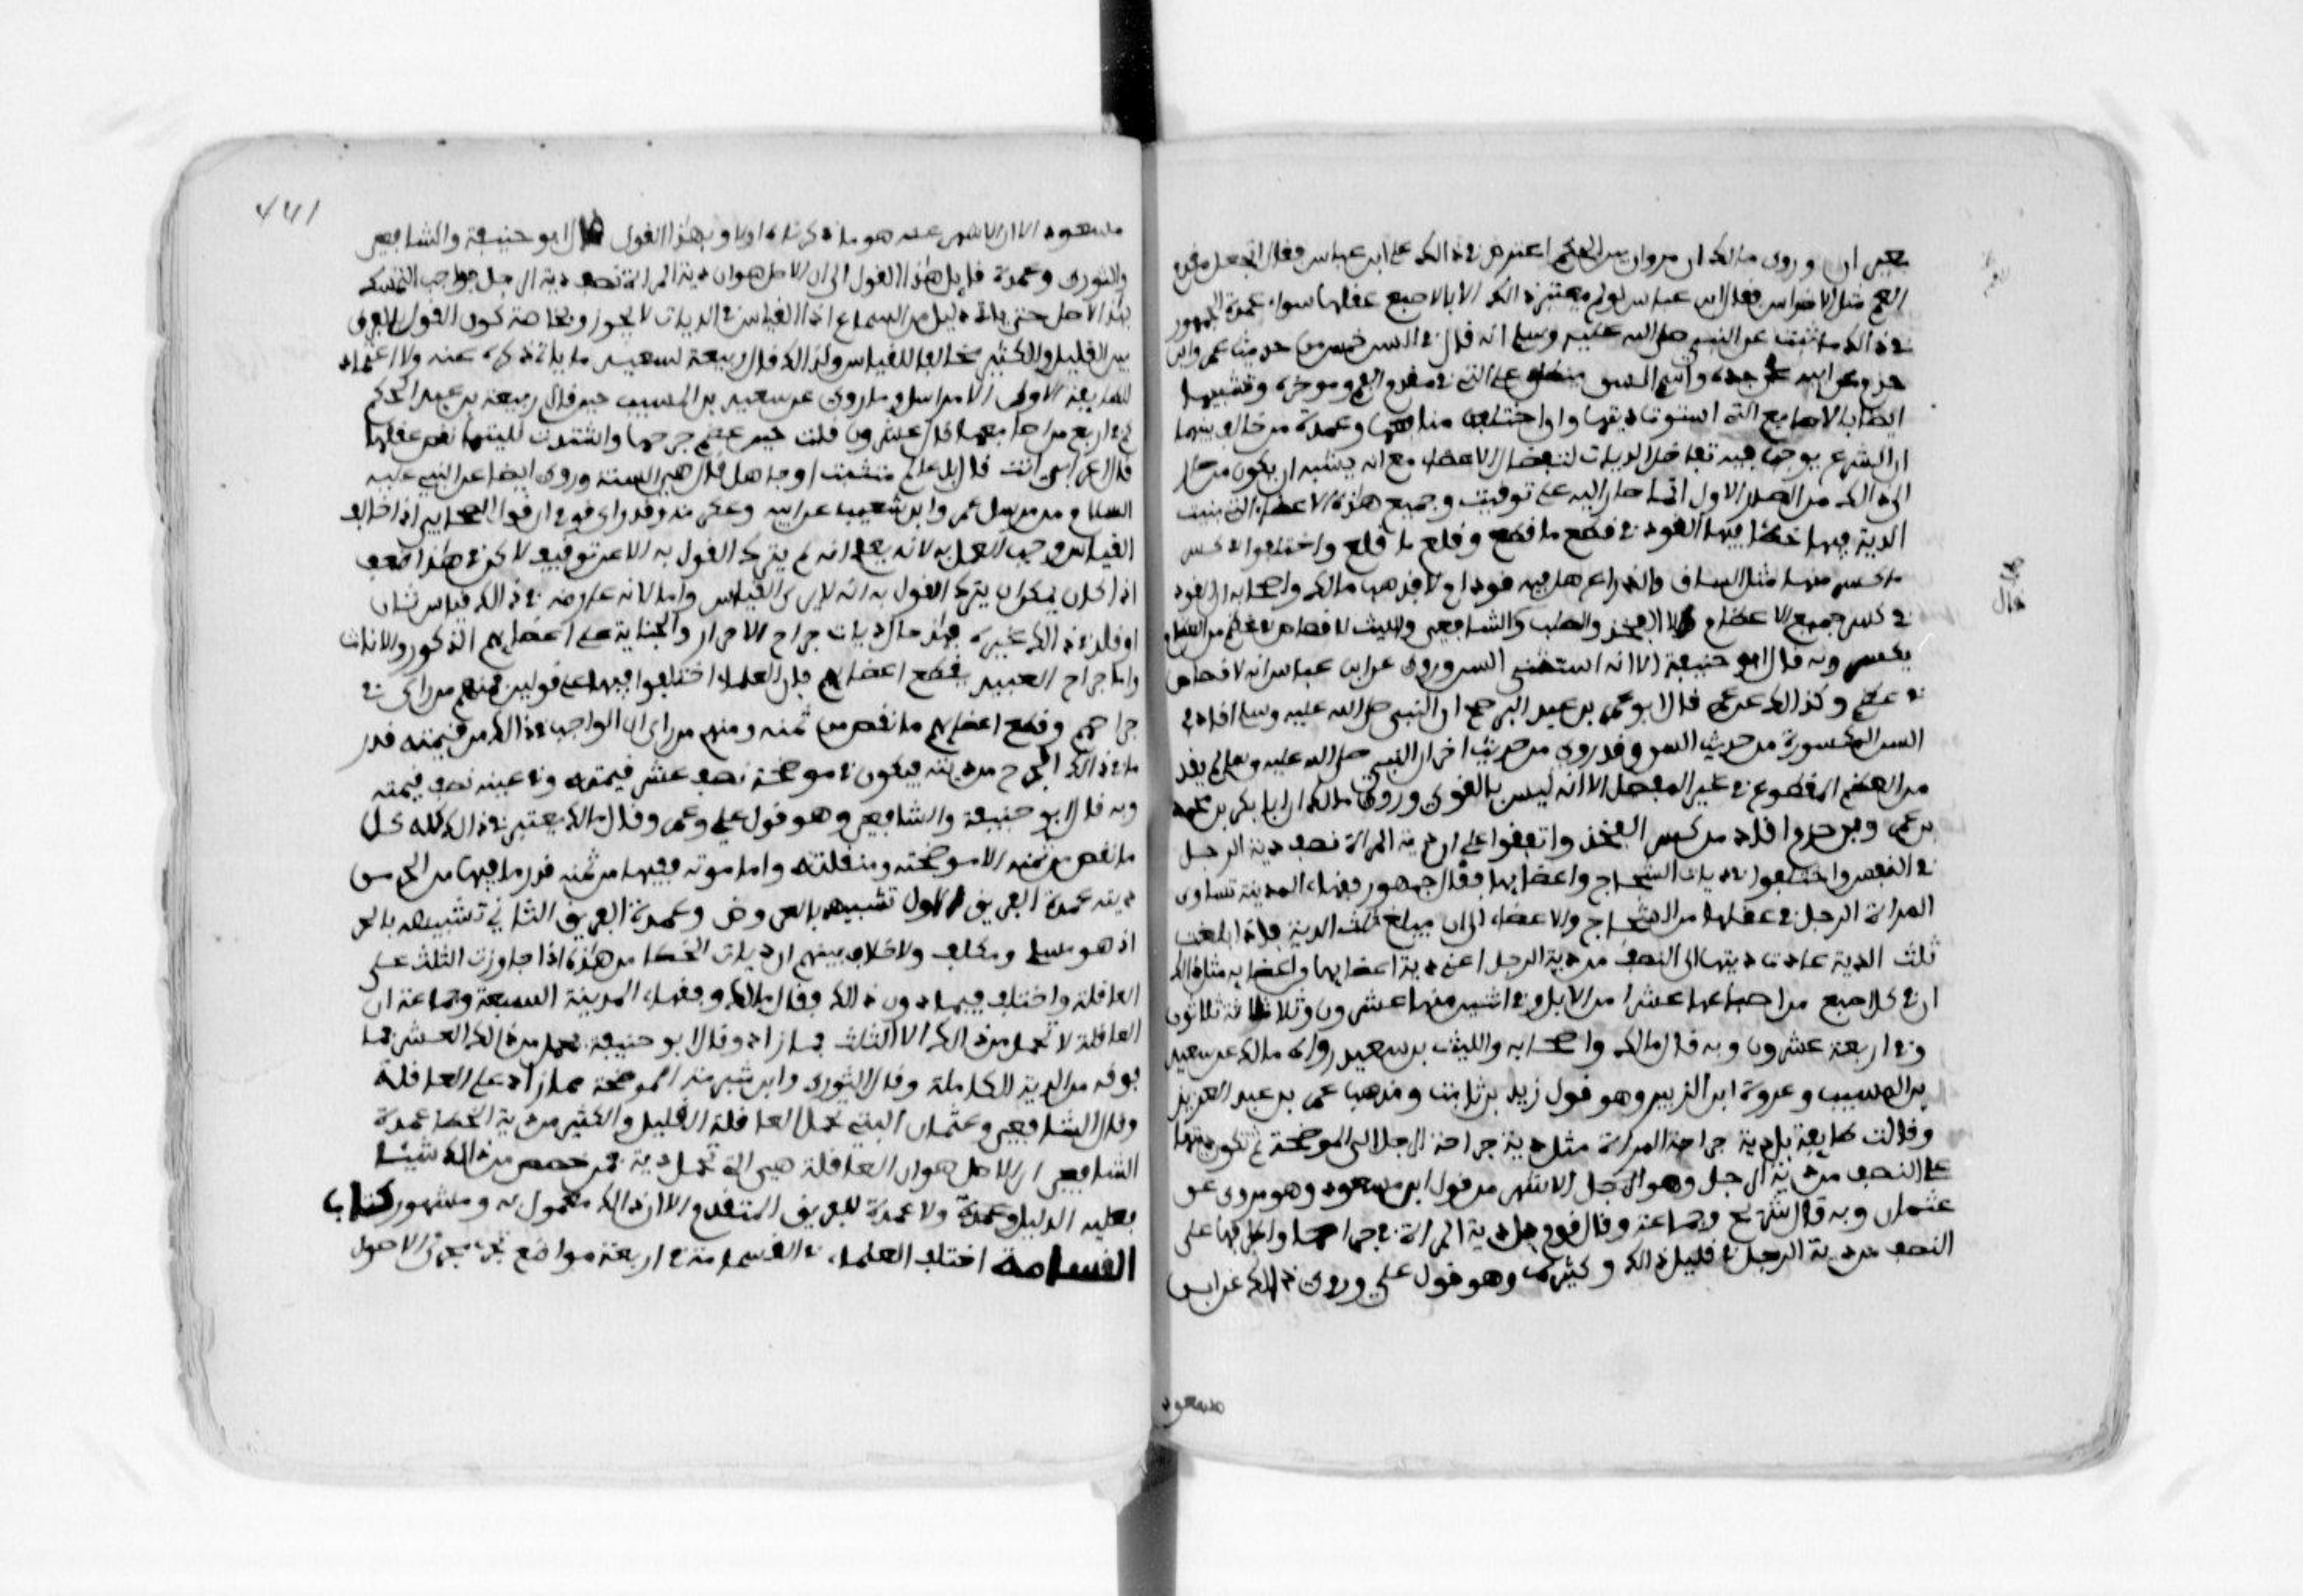 بعير ان وروى مالك ان مروان بن الحكم اعترض في ذالك على ابن عباس فقال اتجعل مقدم
الفم مثل الاضراس فقال ابن عباس لو لم يعتبر ذالك الا بالاصبع عقلها سواء عمدة الجمهور
في ذالك ما ثبت عن النبي صلى الله عليه وسلم انه قال في السن خمس من حديث عمرو ابن
حزم عن ابيه عن جده واسم السن ينطلق على التي في مقدم الفم وموخره وتشبيها
ايضا بالاصابع التي استوت ديتها وان اختلفت منافعها وعمدة من خالف بينهما
ان الشرع يوجد فيه تفاضل الديات لتفاضل الاعضاء مع انه يشبه ان يكون من صار
الى ذالك من الصدر الاول انما صار اليه على توقيت وجميع هذه الاعضاء التي ثبتت
الدية فيها خطئا فيها القود في قطع ما قطع وقلع ما قلع واختلفوا في كسر
ما كسر منها مثل الساق والذراع هل فيه قود ام لا فذهب مالك واصحابه الى القود
في كسر جميع الاعضاء الا الفخذ والصلب والشافعي والليث لا قصاص في عظم من العظام
يكسر وبه قال ابو حنيفة الا انه استثنى السن وروى عن ابن عباس انه لا قصاص
في عظم وكذالك عن عمر قال ابو عمر بن عبد البر صح ان النبي صلى الله عليه وسلم اقاد في
السن المكسورة من حديث انس وقد روي من حديث اخر ان النبي صلى الله عليه وسلم لم يقد
من العظم المقطوع في غير المفصل الا انه ليس بالقوي وروى مالك ان ابا بكر بن محمد
بن عمرو بن حزم اقاد من كسر الفخذ واتفقوا على ان دية المراة نصف دية الرجل
في النفس واختلفوا في ديات الشجاج واعضايها فقال جمهور فقهاء المدينة تساوى
المراة الرجل في عقلها من الشجاج والاعضاء الى ان يبلغ ثلث الدية فاذا بلغت
ثلث الدية عادت ديتها الى النصف من دية الرجل اعني دية اعضايها واعضايه مثال ذالك
ان في كل اصبع من اصابعها عشرا من الابل وفي اثنين منها عشرون وثلاثة ثلاثون
وفي اربعة عشرون وبه قال مالك واصحابه والليث بن سعيد رواه مالك عن سعيد
بن المسيب وعروة ابن الزبير وهو قول زيد بن ثابت ومذهب عمر بن عبد العزيز
وقالت طايفة بل دية جراحة المراة مثل دية جراحة الرجل الى الموضحة ثم تكون ديتها
على النصف من دية الرجل وهو الرجل الاشهر من قول ابن مسعود وهو مروى عن
عثمان وبه قال شريح وجماعة وقال قوم بل دية المراة في جراحها واطرافها على
النصف من دية الرجل في قليل ذالك وكثيره وهو قول علي وروى ذالك عن ابن
مسعود
مسعود الا ان الاشهر عنه هو ما ذكرناه اولا وبهذا القول قال ابو حنيفة والشافعي
والثورى وعمدة قايل هذا القول الى ان الاصل هو ان دية المراة نصف دية الرجل فواجب التمسك
بهذا الاصل حتى ياتي دليل من السماع اذ القياس في الديات لا يجوز وبخاصة كون القول بالفرق
بين القليل والكثير مخالفا للقياس ولذالك قال ربيعة لسعيد ما ياتي ذكره عنه ولا اعتماد
للطايفة الاولى الا مراسل وما روى عن سعيد بن المسيب حين قال ربيعة بن عبد الحكم
كم في اربع من اصابعها قال عشرون قلت حين عظم جرحها واشتدت بليتها نقص عقلها
قال اعراقي انت قال بل عالم متثبت او جاهل قال هي السنة وروى ايضا عن النبي عليه
السلام من مرسل عمرو ابن شعيب عن ابيه وعكرمة وقد راى قوم ان قول الصحابي اذا خالف
القياس وجب العمل به لانه يعلم انه لم يترك القول به الا عن توقيف لاكن في هذا ضعف
اذا كان يمكن ان يترك القول به انه لا يرى القياس واما لانه عارضه في ذالك قياس ثان
او قلد في ذالك غيره فهذه حال ديات جراح الاحرار والجناية على اعضايهم الذكور والاناث
واما جراح العبيد وقطع اعضايهم فان العلماء اختلفوا فيها على قولين فمنهم من راى في
جراحهم وقطع اعضايهم ما نقص من ثمنه ومنهم من راى ان الواجب في ذالك من قيمته قدر
ما في ذالك الجرح من ديته فيكون في موضحته نصف عشر قيمته وفي عينه نصف قيمته
وبه قال ابو حنيفة والشافعي وهو قول علي وعمر وقال مالك يعتبر في ذالك كله
ما نقص من ثمنه الا موضحته ومنقلته وامامومته ففيها من ثمنه قدر ما فيها من الحر من
ديته عمدة الفريق الاول تشبيهه بالعروض وعمدة الفريق الثاني تشبيهه بالحر
اذ هو مسلم ومكلف ولا خلاف بينهم ان ديات الخطا من هذه اذا جاوزت الثلث على
العاقلة واختلف فيما دون ذالك فقال مالك وفقهاء المدينة السبعة وجماعة ان
العاقلة لا تحمل من ذالك الا الثلث فما زاد وقال ابو حنيفة تحمل من ذالك العشر فما
فوقه من الدية الكاملة وقال الثورى وابن شبرمة الموضحة فما زاد على العاقلة
وقال الشافعي وعثمان البتي تحمل العاقلة القليل والكثير من دية الخطا عمدة
الشافعي ان الاصل هو ان العاقلة هي التي تحمل دية فمن خصص من ذالك شيئا
فعليه الدليل وعمدة ولا عمدة للفريق المتقدم الا ان ذالك معمول به ومشهور كتاب
القسامة اختلف العلماء في القسامة في اربعة مواضع تجرى مجرى الاصول